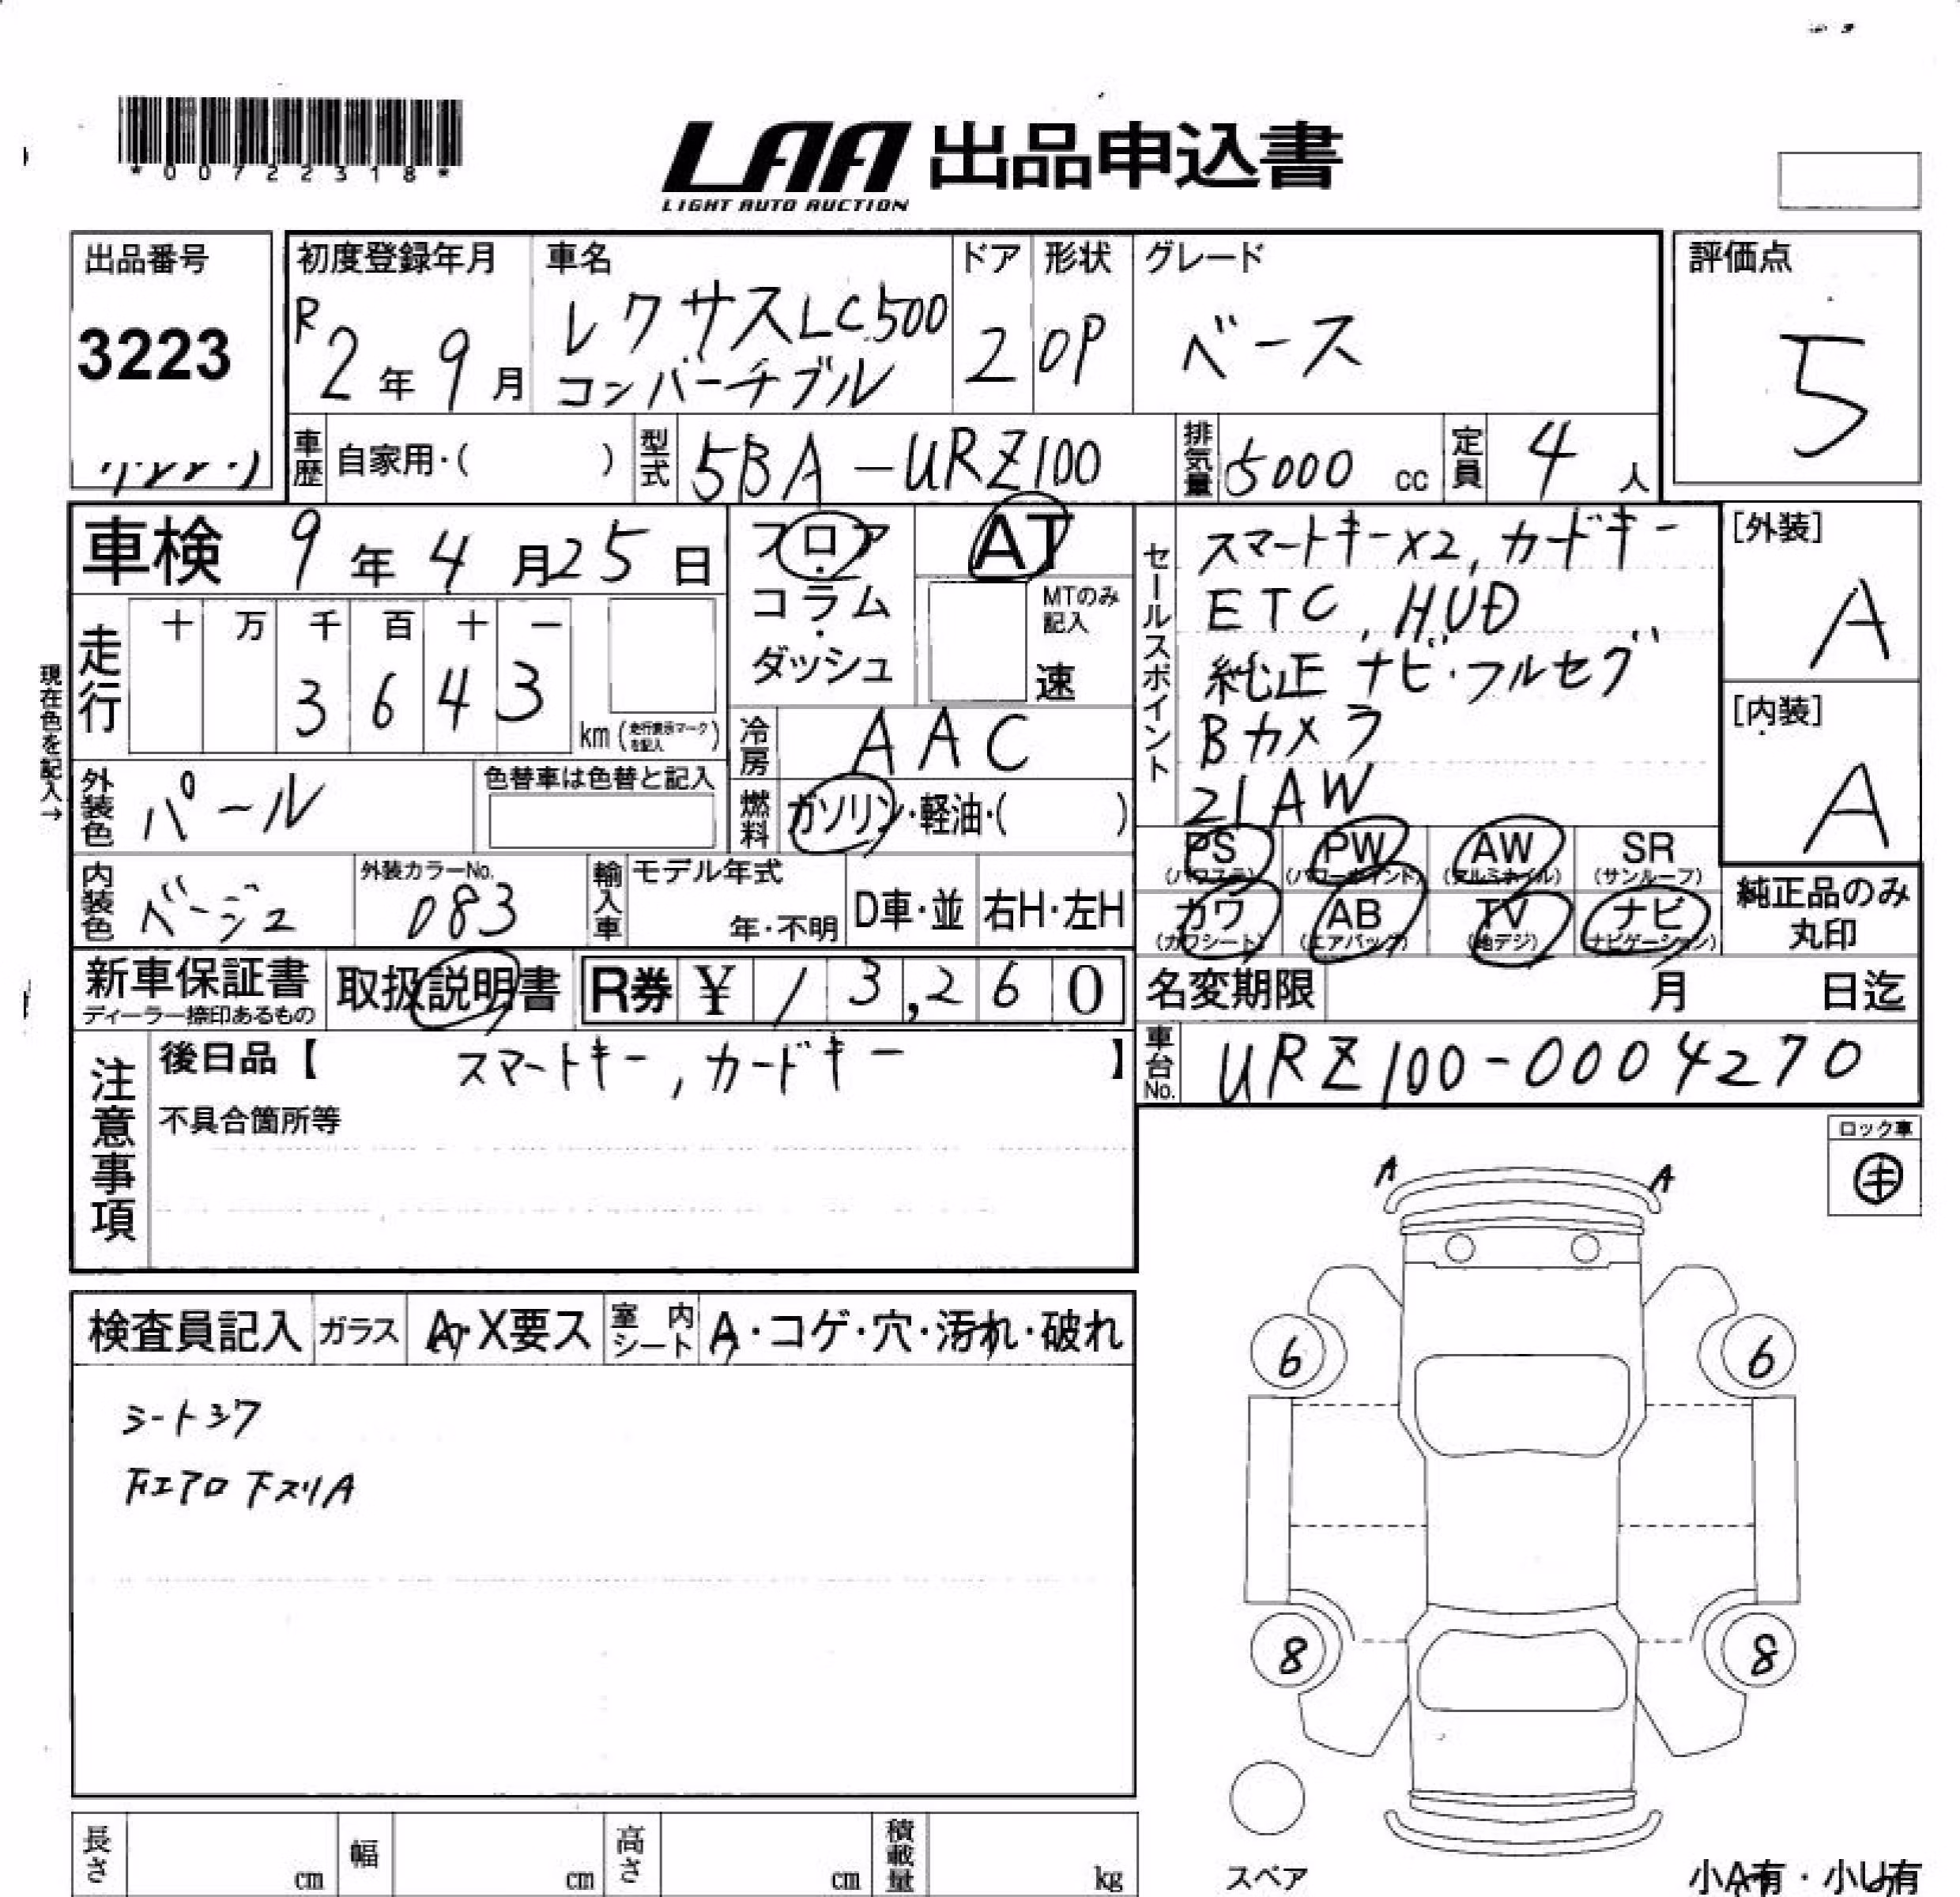 *00722318*
LAA 出品申込書
LIGHT AUTO AUCTION
出品番号
3223
初度登録年月
R2年9月
車名
レクサスLC500
コンバーチブル
ドア
2
形状
OP
グレード
ベース
評価点
5
車歴 自家用・( )
型式 5BA-URZ100
排気量 5000 cc
定員 4人
車検 9年4月25日
フロア・
コラム・
ダッシュ
AT
MTのみ
記入
速
セールスポイント
スマートキーX2, カードキー
ETC, HUD
純正ナビ・フルセグ
Bカメラ
21AW
[外装]
A
[内装]
A
現在色を記入→
走行
十 万 千 百 十 一
3 6 4 3
km(走行表示マークを記入)
冷房 AAC
外装色 パール
色替車は色替と記入
燃料 ガソリン・軽油・( )
PS (パワステ)
PW (パワーウィンド)
AW (アルミホイル)
SR (サンルーフ)
カワ (カワシート)
AB (エアバッグ)
TV (地デジ)
ナビ (ナビゲーション)
純正品のみ
丸印
内装色 ベージュ
外装カラーNo.
083
輸入車
モデル年式
年・不明
D車・並
右H・左H
新車保証書
ディーラー捺印あるもの
取扱説明書
R券 ¥ 13,260
名変期限 月 日迄
注意事項
後日品【 スマートキー, カードキー 】
不具合箇所等
車台No. URZ100-0004270
ロック車
キ
A A
検査員記入 ガラス A・X要ス
室内シート A・コゲ・穴・汚れ・破れ
シートシワ
下スリA
6 6
8 8
スペア
小A有・小U有
長さ cm
幅 cm
高さ cm
積載量 kg